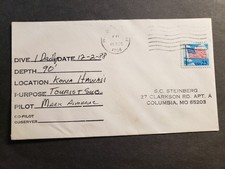 DIVE 1 Design DATE 12-2-97
DEPTH 90'
LOCATION KONA HAWAII
PURPOSE TOURIST SUB.
PILOT MARK
CO-PILOT
OBSERVER
S.C. STEINBERG
37 CLARKSON RD. APT. A
COLUMBIA, MO 65203